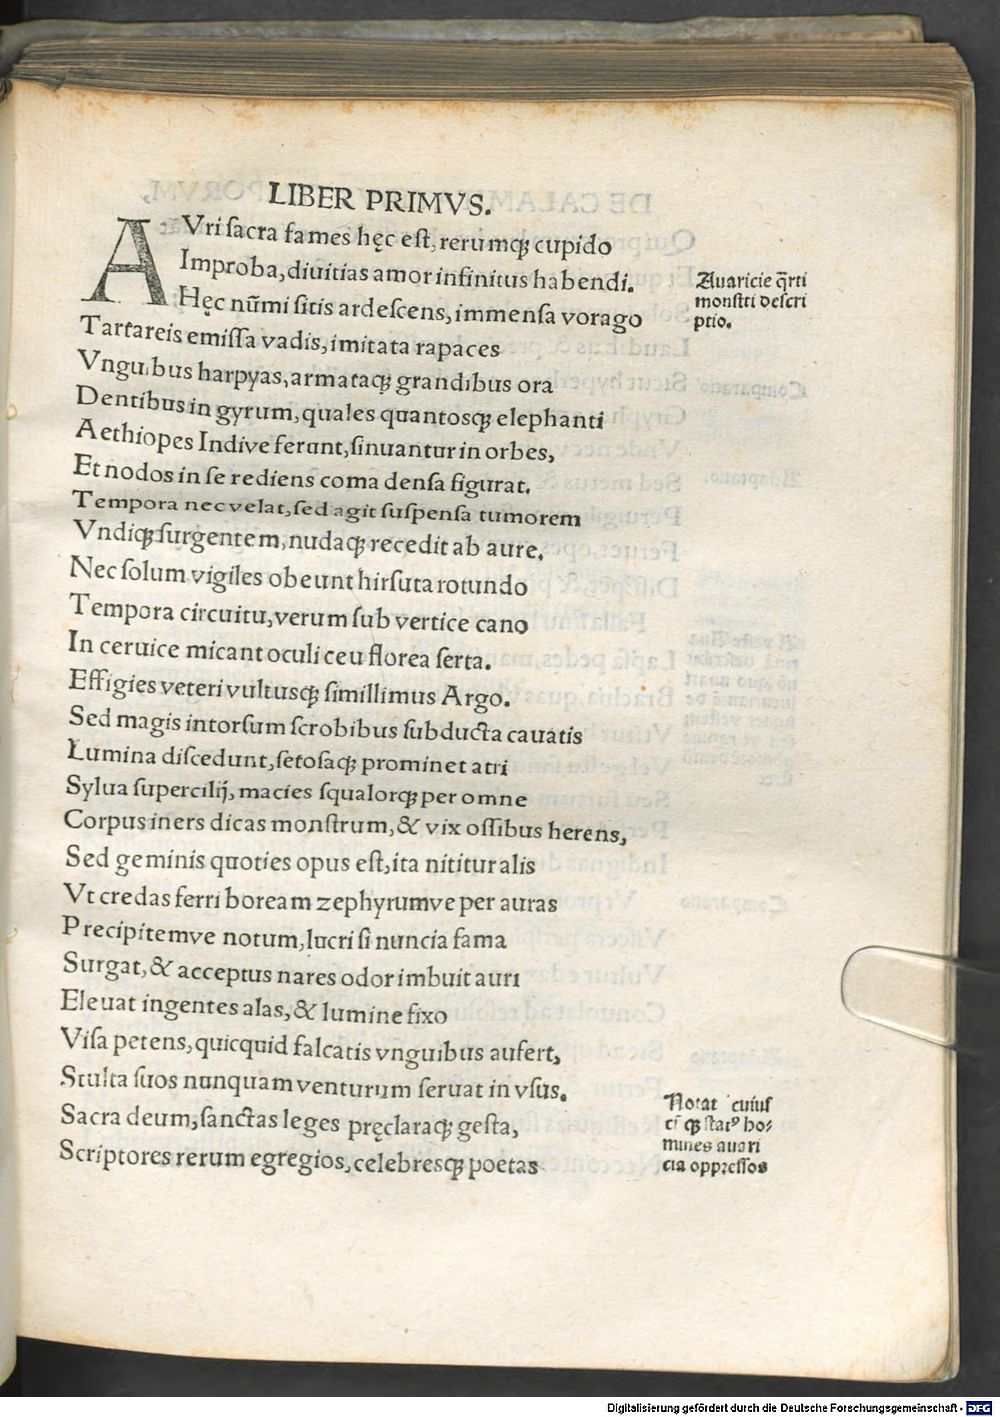 LIBER PRIMVS.
AVri ſacra fames hęc eſt, rerumqꝫ cupido
Improba, diuitias amor infinitus habendi.
Hęc nūmi ſitis ardeſcens, immenſa vorago
Tartareis emiſſa vadis, imitata rapaces
Vnguibus harpyas, armataqꝫ grandibus ora
Dentibus in gyrum, quales quantosqꝫ elephanti
Aethiopes Indive ferunt, ſinuantur in orbes,
Et nodos in ſe rediens coma denſa figurat.
Tempora nec velat, ſed agit ſuſpenſa tumorem
Vndiqꝫ ſurgentem, nudaqꝫ recedit ab aure.
Nec ſolum vigiles obeunt hirſuta rotundo
Tempora circuitu, verum ſub vertice cano
In ceruice micant oculi ceu florea ſerta.
Effigies veteri vultusqꝫ ſimillimus Argo.
Sed magis intorſum ſcrobibus ſubducta cauatis
Lumina diſcedunt, ſetoſaqꝫ prominet atri
Sylua ſupercilij, macies ſqualorqꝫ per omne
Corpus iners dicas monſtrum, & vix oſſibus herens,
Sed geminis quoties opus eſt, ita nititur alis
Vt credas ferri boream zephyrumve per auras
Precipitemve notum, lucri ſi nuncia fama
Surgat, & acceptus nares odor imbuit auri
Eleuat ingentes alas, & lumine fixo
Viſa petens, quicquid falcatis vnguibus aufert,
Stulta ſuos nunquam venturum ſeruat in vſus.
Sacra deum, ſanctas leges pręclaraqꝫ geſta,
Scriptores rerum egregios, celebresqꝫ poetas
Auaricie q̄rti
monſtri deſcri
ptio.
Notat cuiuſ
cūqꝫ ſtatꝰ ho⸗
mines auari
cia oppreſſos
Digitalisierung gefördert durch die Deutsche Forschungsgemeinschaft - DFG